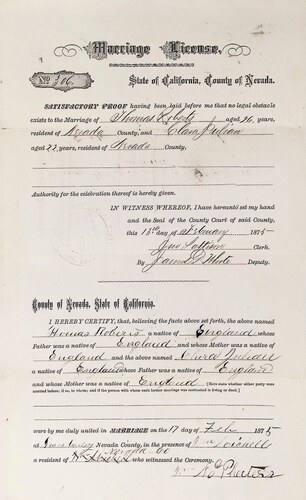 Marriage License.
No. 306. State of California, County of Nevada.
SATISFACTORY PROOF having been laid before me that no legal obstacle
exists to the Marriage of Thomas Roberts aged 26, years,
resident of Nevada County, and Clara Julian
aged 22 years, resident of Nevada County.
Authority for the celebration thereof is hereby given.
IN WITNESS WHEREOF, I have hereunto set my hand
and the Seal of the County Court of said County,
this 13th day of February 1875
Clerk.
By James D White Deputy.
County of Nevada, State of California.
I HEREBY CERTIFY, that, believing the facts above set forth, the above named
Thomas Roberts a native of England whose
Father was a native of England and whose Mother was a native of
England and the above named Clara Julian
a native of England whose Father was a native of England
and whose Mother was a native of England [Here state whether either party were married
before; if so, to whom; and if the person with whom such former marriage was contracted is living or dead.]
were by me duly united in MARRIAGE on the 17 day of Feb 1875
at Grass Valley Nevada County, in the presence of
a resident of Nevada Co who witnessed the Ceremony.